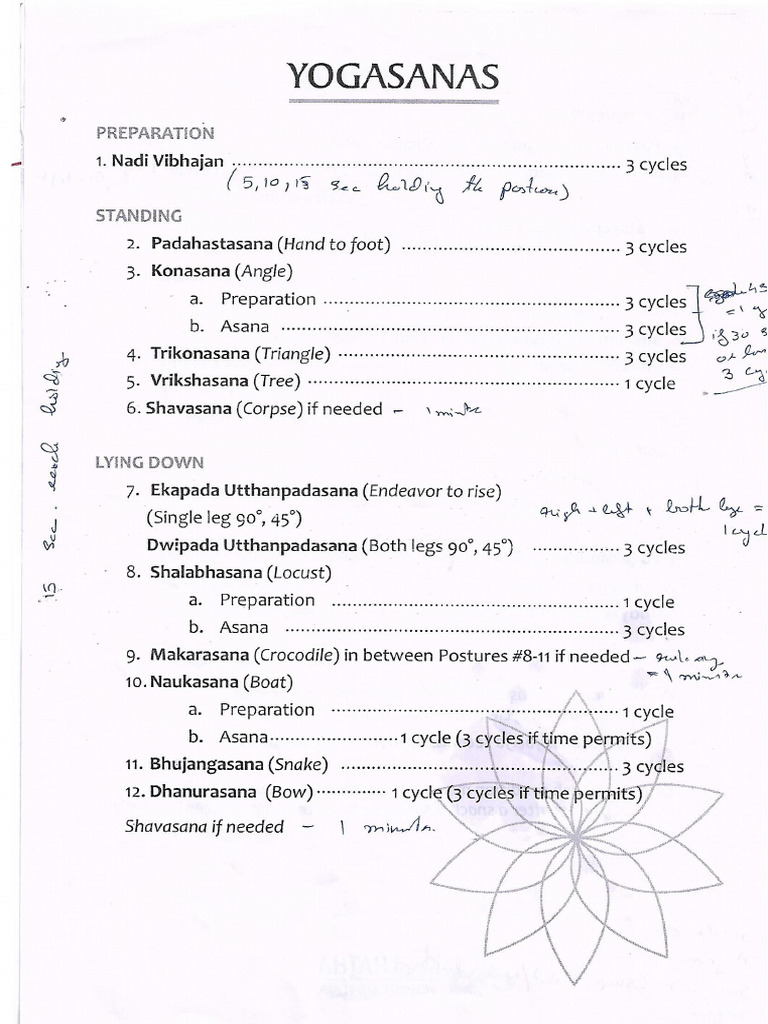 YOGASANAS
PREPARATION
1. Nadi Vibhajan ........ 3 cycles
(5, 10, 15 sec holding the posture)
STANDING
2. Padahastasana (Hand to foot) ........ 3 cycles
3. Konasana (Angle)
a. Preparation ........ 3 cycles
b. Asana ........ 3 cycles
= 1
if 30
3
4. Trikonasana (Triangle) ........ 3 cycles
5. Vrikshasana (Tree) ........ 1 cycle
6. Shavasana (Corpse) if needed – 1 minute
15 sec. each holding
LYING DOWN
7. Ekapada Utthanpadasana (Endeavor to rise)
(Single leg 90°, 45°)
+ left + both legs =
1 cycle
Dwipada Utthanpadasana (Both legs 90°, 45°) ........ 3 cycles
8. Shalabhasana (Locust)
a. Preparation ........ 1 cycle
b. Asana ........ 3 cycles
9. Makarasana (Crocodile) in between Postures #8-11 if needed –
= 1 minute
10. Naukasana (Boat)
a. Preparation ........ 1 cycle
b. Asana ........ 1 cycle (3 cycles if time permits)
11. Bhujangasana (Snake) ........ 3 cycles
12. Dhanurasana (Bow) ........ 1 cycle (3 cycles if time permits)
Shavasana if needed – 1 minute.